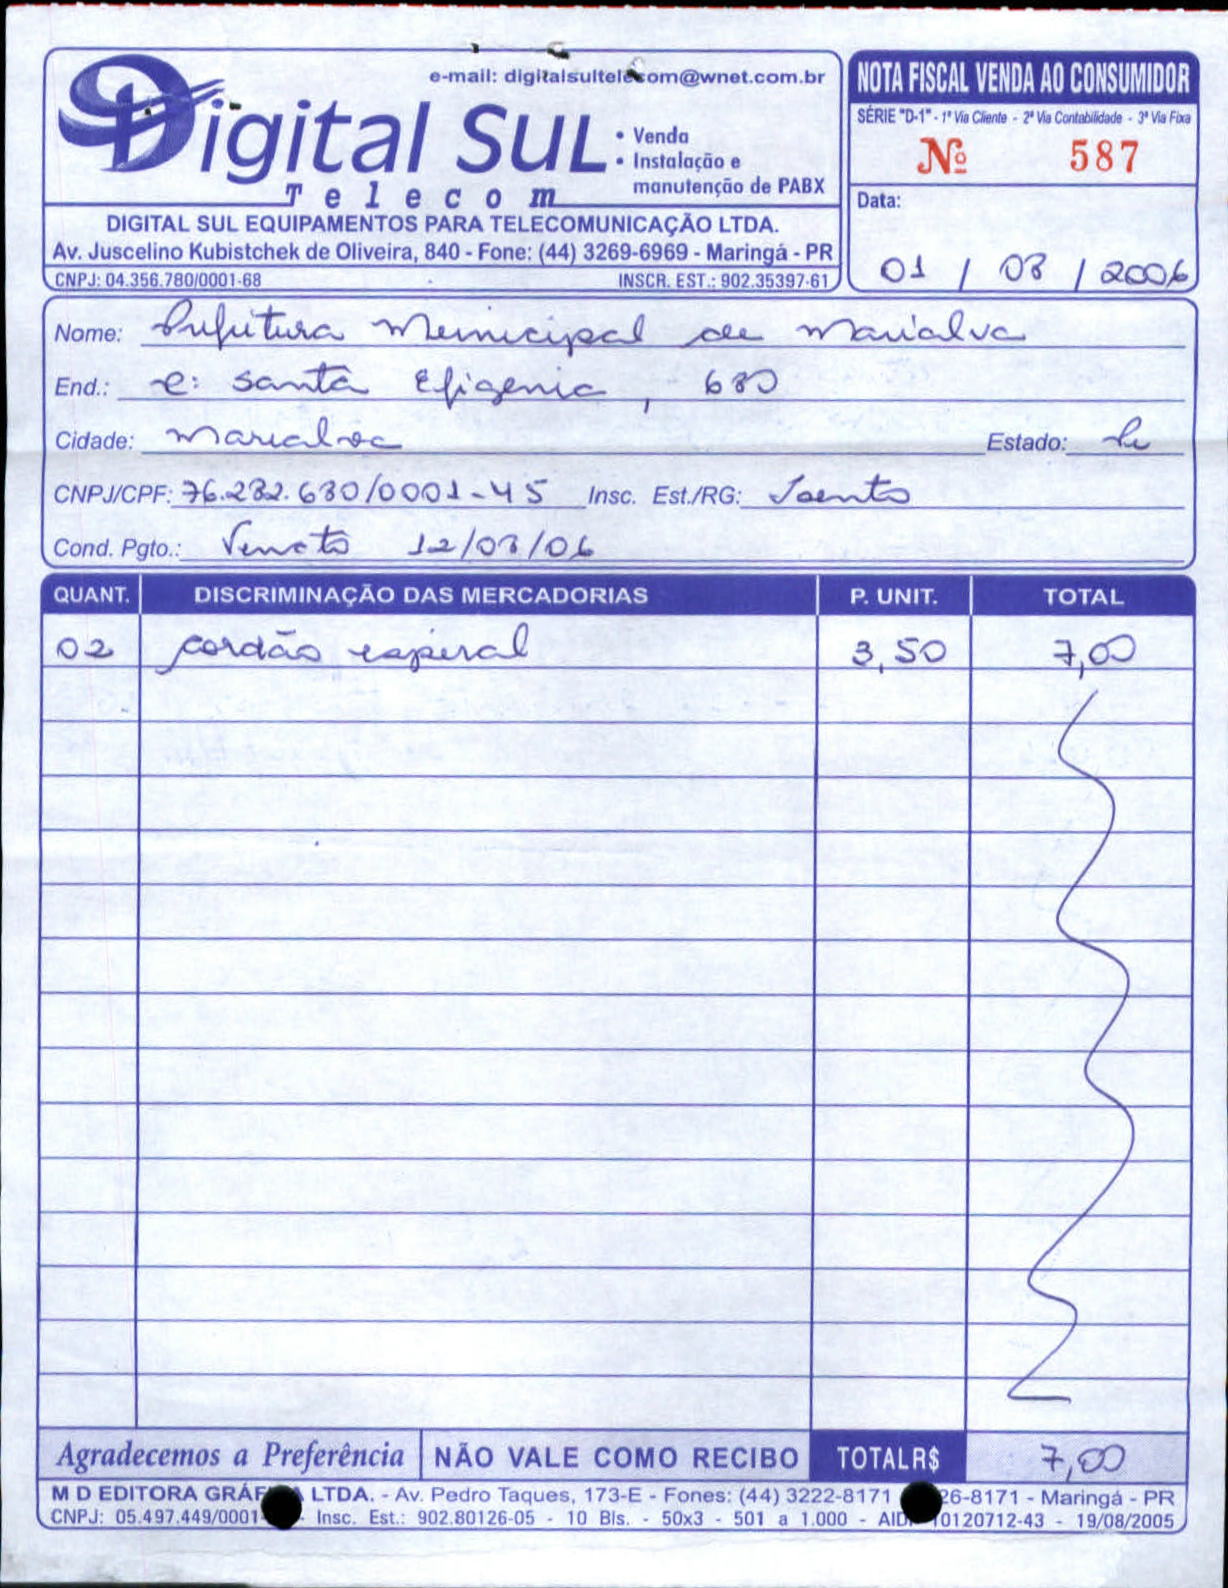 e-mail: digitalsultelecom@wnet.com.br
Digital SUL
Telecom
• Venda
• Instalação e
manutenção de PABX
DIGITAL SUL EQUIPAMENTOS PARA TELECOMUNICAÇÃO LTDA.
Av. Juscelino Kubistchek de Oliveira, 840 - Fone: (44) 3269-6969 - Maringá - PR
CNPJ: 04.356.780/0001-68 INSCR. EST.: 902.35397-61
NOTA FISCAL VENDA AO CONSUMIDOR
SÉRIE "D-1" - 1ª Via Cliente - 2ª Via Contabilidade - 3ª Via Fixa
Nº 587
Data:
01 / 08 / 2006
Nome: Prefeitura Municipal de Marialva
End.: R: Santa Efigenia, 680
Cidade: Marialva Estado: Pr
CNPJ/CPF: 76.282.680/0001-45 Insc. Est./RG: Isento
Cond. Pgto.: Vencto 12/08/06
QUANT. DISCRIMINAÇÃO DAS MERCADORIAS P. UNIT. TOTAL
02 cordão espiral 3,50 7,00
Agradecemos a Preferência NÃO VALE COMO RECIBO TOTAL R$ 7,00
M D EDITORA LTDA. - Av. Pedro Taques, 173-E - Fones: (44) 3222-8171 26-8171 - Maringá - PR
CNPJ: 05.497.449/0001 - Insc. Est.: 902.80126-05 - 10 Bls. - 50x3 - 501 a 1.000 - 10120712-43 - 19/08/2005